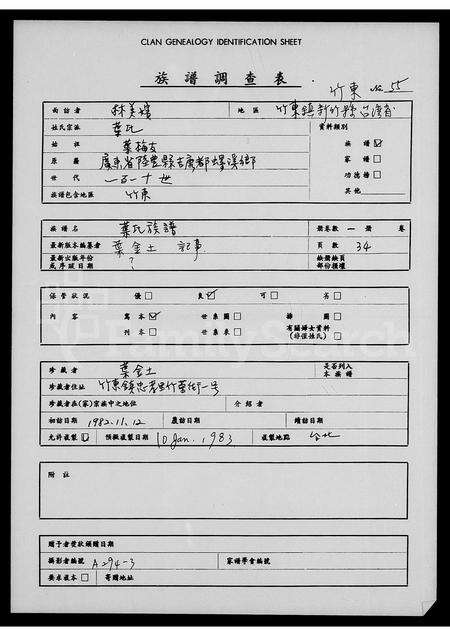 CLAN GENEALOGY IDENTIFICATION SHEET
族譜調查表
竹東 No. 55
面訪者 林美娥 地區 竹東鎮新竹縣台灣省
姓氏宗派 葉氏 資料類別
始祖 葉梅古 族譜 ☑
原籍 廣東省陸豐縣吉康都螺溪鄉 家譜 □
世代 一至十世 功德榜 □
族譜包含地區 竹東 其他
族譜名 葉氏族譜 冊卷數 一 冊 卷
最新版本編纂者 葉金土 記事 頁數 34
最新出版年份 ? 缺冊缺頁
或序跋日期 部份損壞
保管狀況 優 □ 良 ☑ 可 □ 劣 □
內容 寫本 ☑ 世系圖 □ 排圖 □
刊本 □ 世系表 □ 有關婦女資料 □
珍藏者 葉金土 是否列入
本族譜
珍藏者住址 竹東鎮忠孝里竹蓉街一号
珍藏者在(家)宗族中之地位 介紹者
初訪日期 1982.11.12 歲訪日期 續訪日期
允許複製 ☑ 預擬複製日期 10 Jan. 1983 複製地點 台北
附註
贈予者登欵頒贈日期
攝影者編號 A294-3 家譜學會編號
要求複本 □ 寄贈地址
FamilySearch